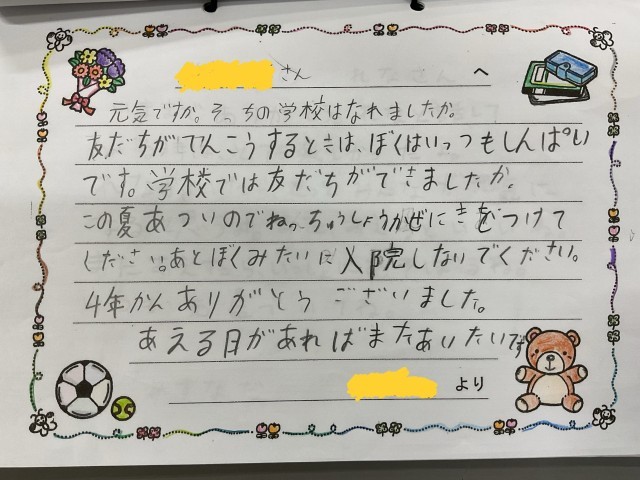 さん へ
元気ですか。そっちの学校はなれましたか。
友だちがてんこうするときは、ぼくはいっつもしんぱい
です。学校では友だちができましたか。
この夏あついのでねっちゅうしょうかぜにきをつけて
ください。あとぼくみたいに入院しないでください。
4年かんありがとうございました。
あえる日があればまたあいたいです
より